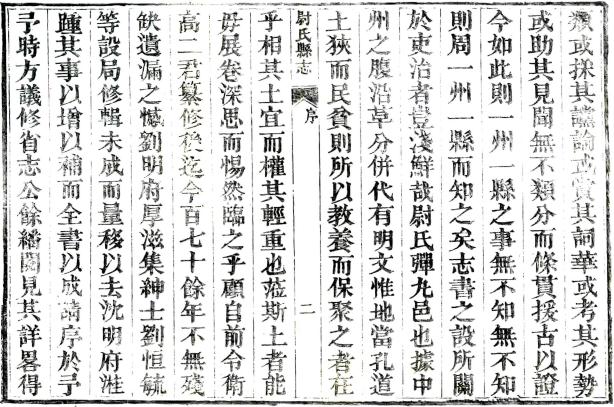 類或採其讜論或賞其詞華或考其形勢
或助其見聞無不類分而條貫援古以證
今如此則一州一縣之事無不知無不知
則周一州一縣而知之矣志書之設所關
於吏治者豈淺鮮哉尉氏彈丸邑也據中
州之腹沿革分併代有明文惟地當孔道
土狹而民貧則所以教養而保聚之者在
尉氏縣志 序 二
乎相其土宜而權其輕重也蒞斯土者能
好展卷深思而惕然臨之乎顧自前令衛
高二君纂修後迄今百七十餘年不無殘
缺遺漏之憾劉明府厚滋集紳士劉恒毓
等設局修輯未成而量移以去沈明府溎
踵其事以增以補而全書以成請序於予
予時方議修省志公餘繙閱見其詳畧得